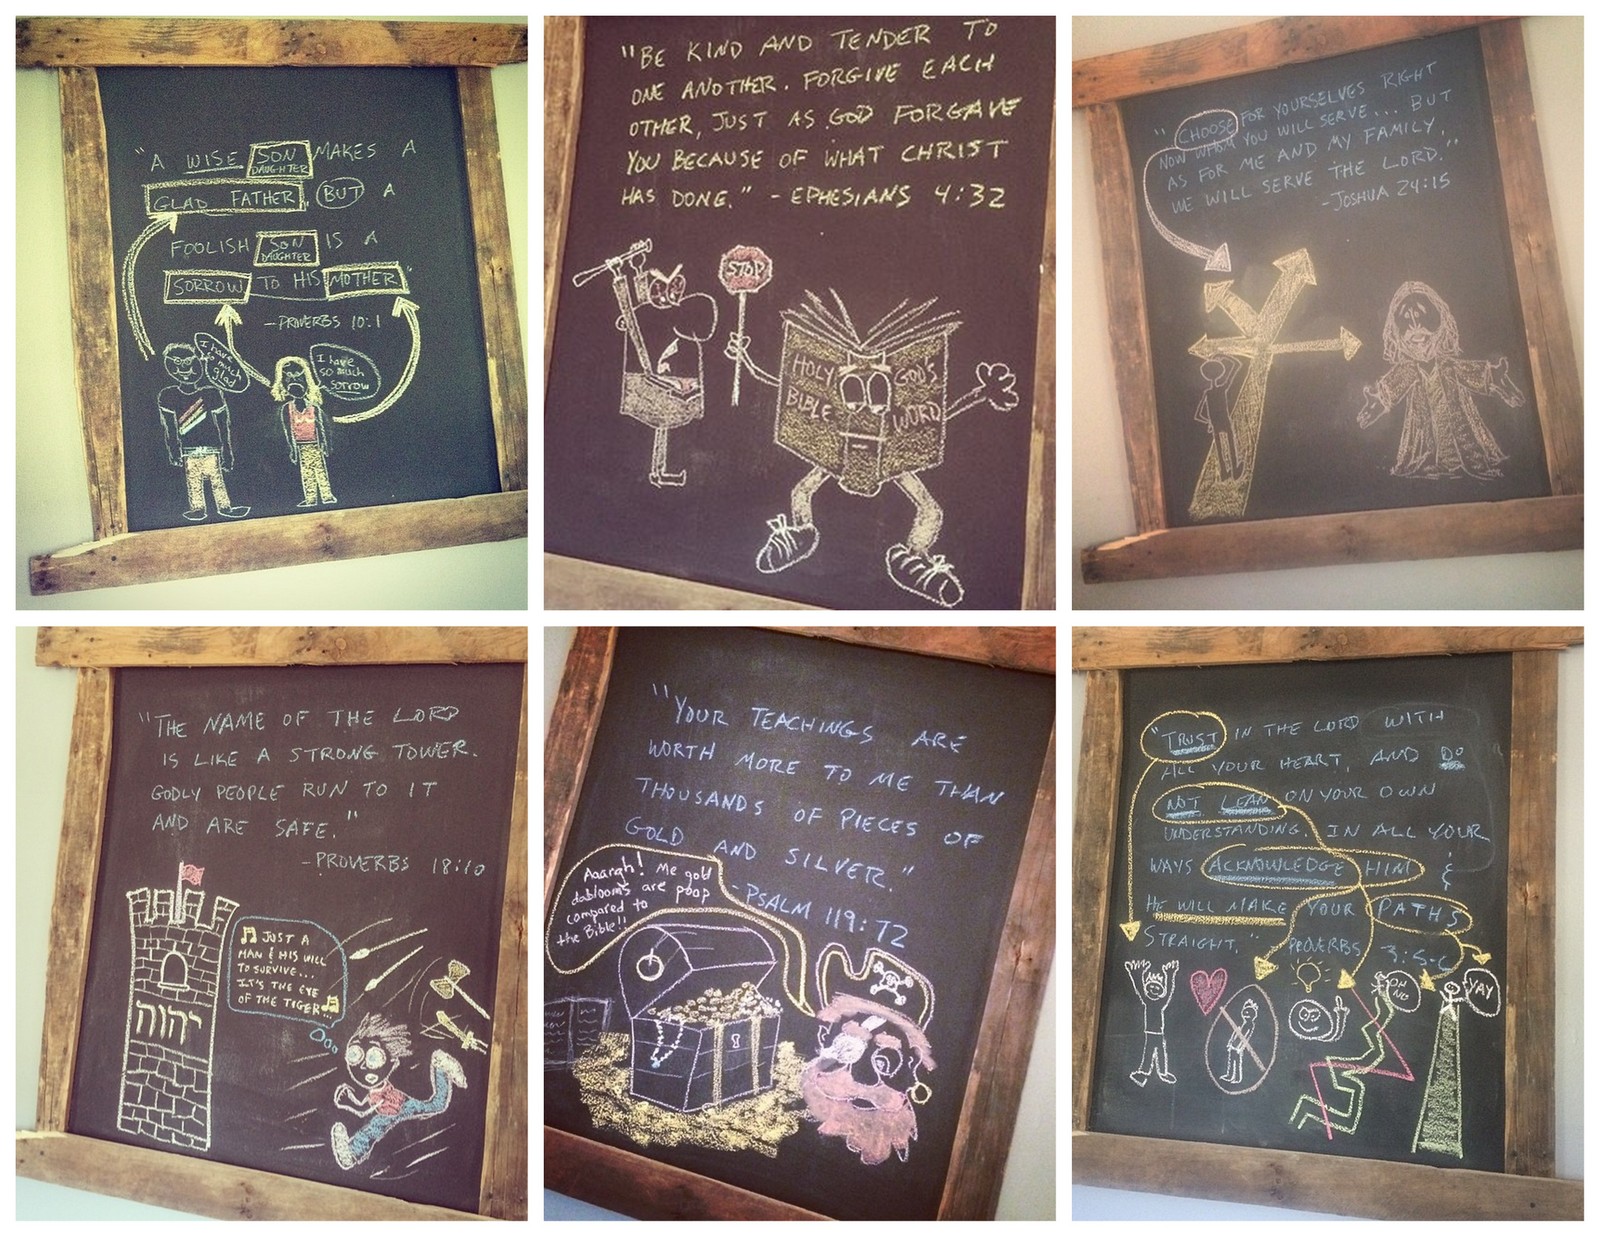 "A WISE SON MAKES A
DAUGHTER
GLAD FATHER, BUT A
FOOLISH SON IS A
DAUGHTER
SORROW TO HIS MOTHER"
-PROVERBS 10:1
I have
so much
glad
I have
so much
sorrow
"BE KIND AND TENDER TO
ONE ANOTHER. FORGIVE EACH
OTHER, JUST AS GOD FORGAVE
YOU BECAUSE OF WHAT CHRIST
HAS DONE." - EPHESIANS 4:32
STOP
HOLY
BIBLE
GOD'S
WORD
"CHOOSE FOR YOURSELVES RIGHT
NOW WHOM YOU WILL SERVE... BUT
AS FOR ME AND MY FAMILY,
WE WILL SERVE THE LORD."
-JOSHUA 24:15
"THE NAME OF THE LORD
IS LIKE A STRONG TOWER.
GODLY PEOPLE RUN TO IT
AND ARE SAFE."
-PROVERBS 18:10
♫ JUST A
MAN & HIS WILL
TO SURVIVE...
IT'S THE EYE
OF THE TIGER... ♫
יהוה
"YOUR TEACHINGS ARE
WORTH MORE TO ME THAN
THOUSANDS OF PIECES OF
GOLD AND SILVER."
-PSALM 119:72
Aaargh! Me gold
dabloons are poop
compared to
the Bible!!
"TRUST IN THE LORD WITH
ALL YOUR HEART, AND DO
NOT LEAN ON YOUR OWN
UNDERSTANDING. IN ALL YOUR
WAYS ACKNOWLEDGE HIM &
HE WILL MAKE YOUR PATHS
STRAIGHT." - PROVERBS 3:5-6
OH
NO
YAY